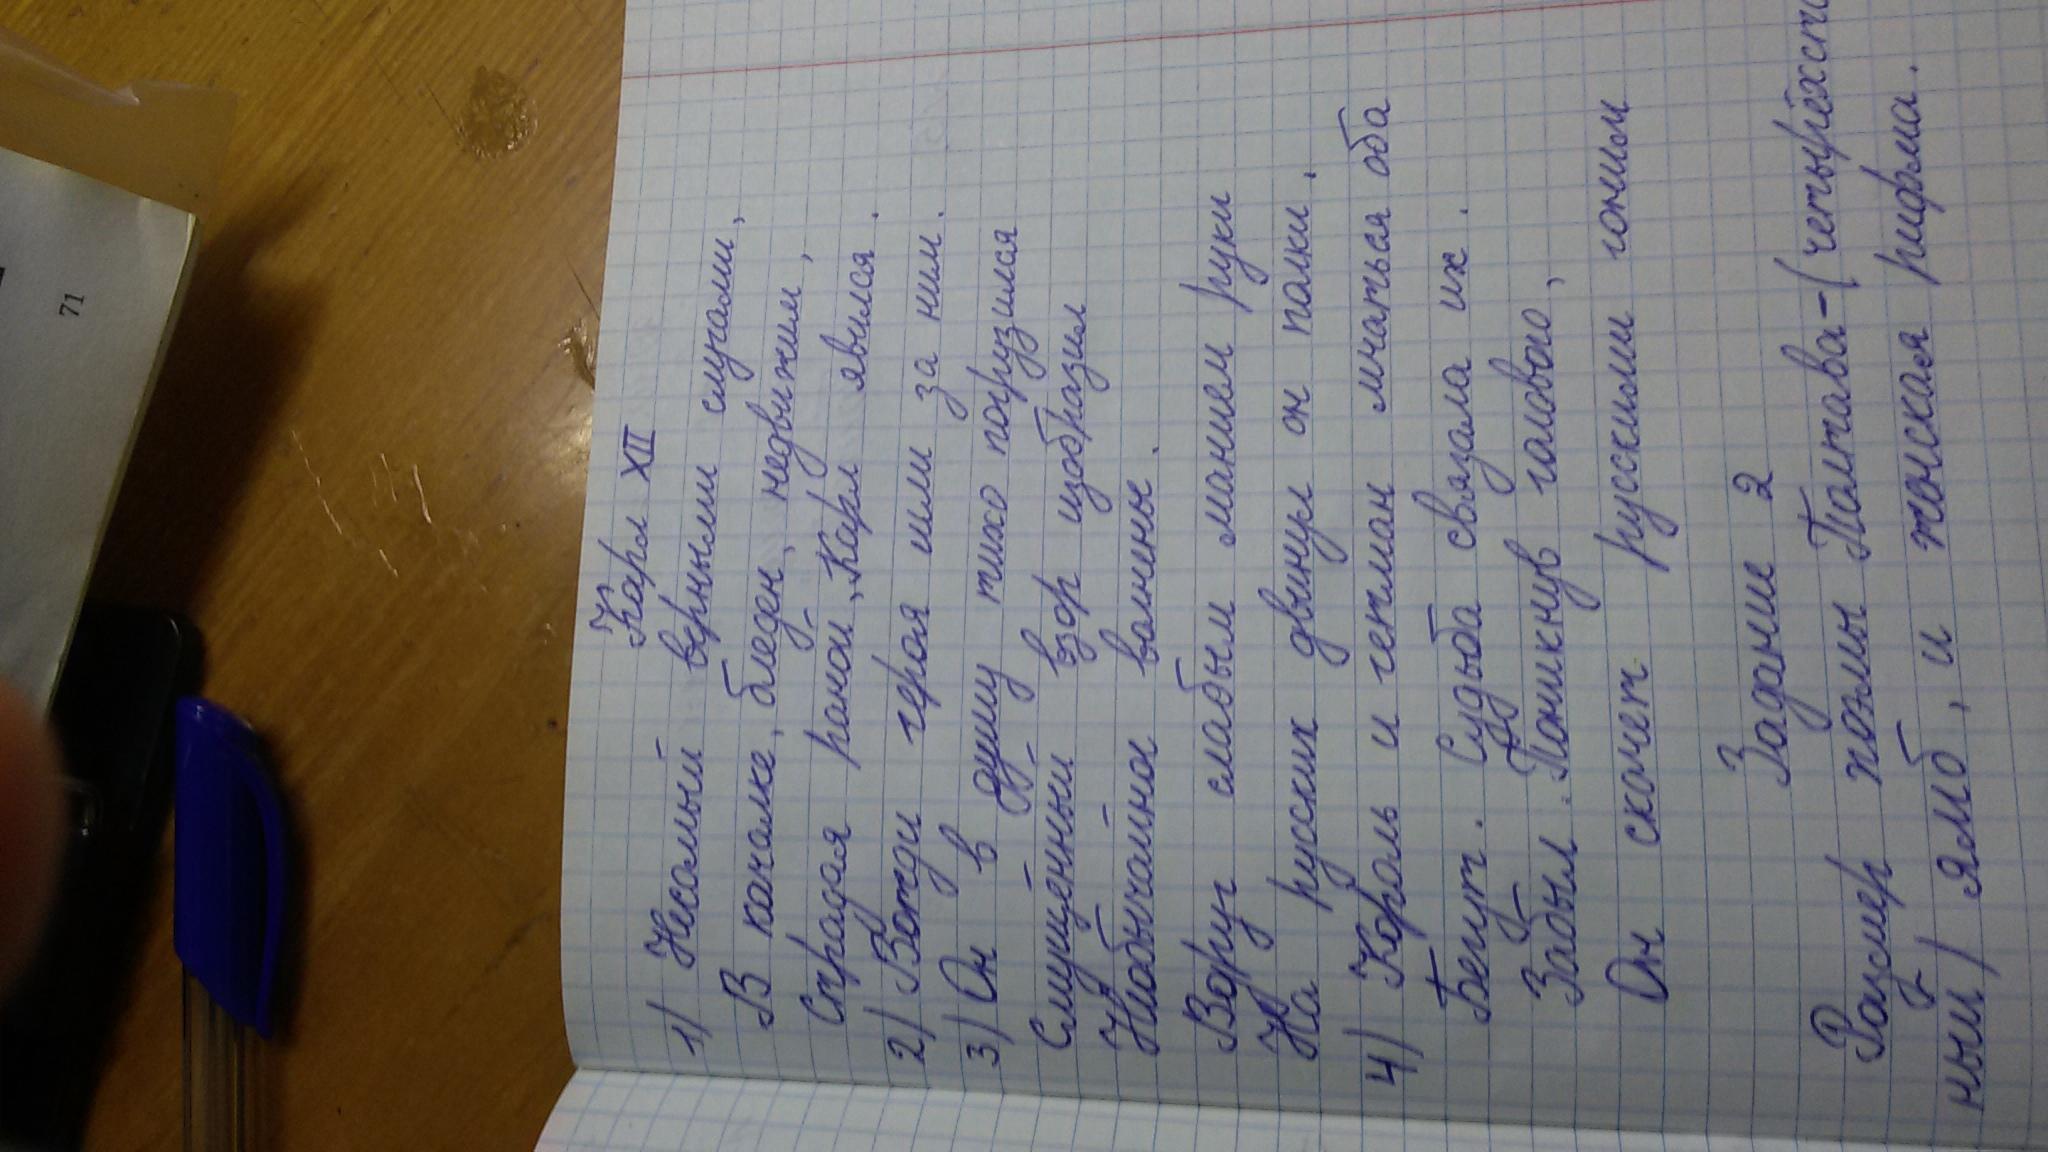 71
Карл XII
1) Несомый верными слугами,
В качалке, бледен, недвижим,
Страдая раной, Карл явился.
2) Вожди героя шли за ним.
3) Он в думу тихо погрузился
Смущенный взор изобразил
Необычайное волненье.
Вдруг слабым манием руки
На русских двинул он полки.
4) Король и гетман мчаться оба
Бегут. Судьба связала их.
Забыл. Поникнув головою,
Он скачет русскими гоним
Задание 2
Размер поэмы Полтава - (четырёхстоп
ный) ямб, и женская рифма.